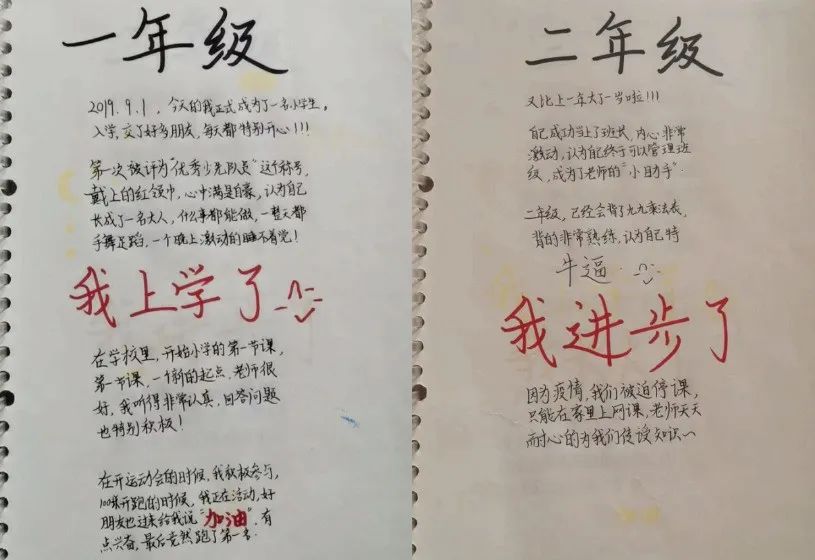 一年级
2019.9.1，今天的我正式成为了一名小学生。
入学，交了好多朋友，每天都特别开心！！！
第一次被评为“优秀少先队员”这个称号，
戴上的红领巾，心中满是自豪，认为自己
长成了一名大人，什么事都能做，一整天都
手舞足蹈，一个晚上激动的睡不着觉！
我上学了
在学校里，开始小学的第一节课，
第一节课，一个新的起点，老师很
好，我听得非常认真，回答问题
也特别积极！
在开运动会的时候，我积极参与，
100米开跑的时候，我正在活动，好
朋友也过来给我说“加油”，有
点兴奋，最后竟然跑了第一名.
二年级
又比上一年大了一岁啦！！！
自己成功当上了班长，内心非常
激动，认为自己终于可以管理班
级，成为了老师的“小助手”.
二年级，已经会背了九九乘法表，
背的非常熟练，认为自己特
牛逼.
我进步了
因为疫情，我们被迫停课，
只能在家里上网课，老师天天
耐心的为我们传授知识～